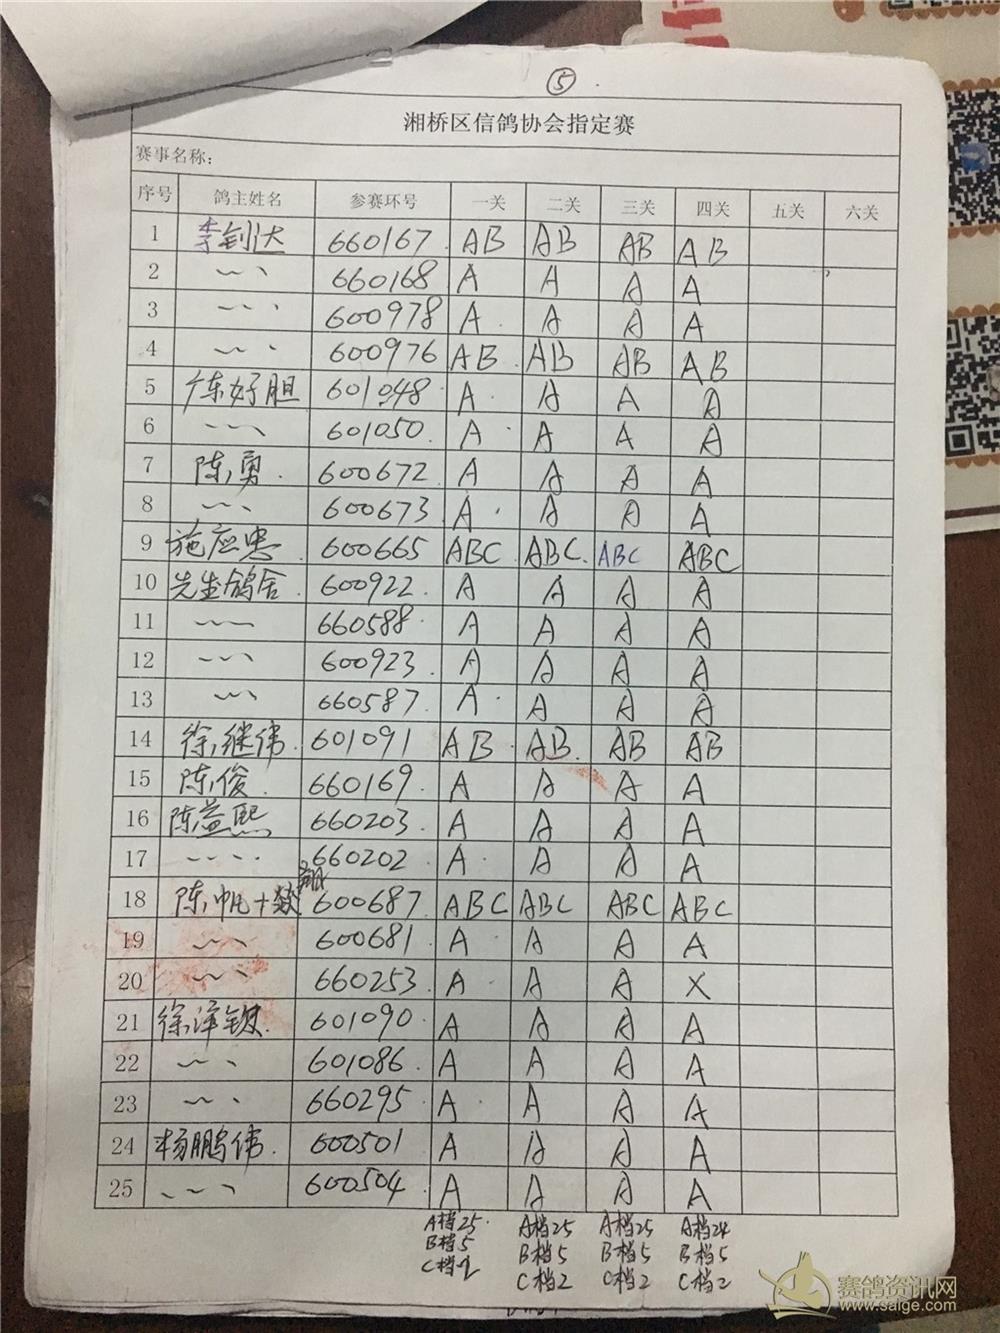 ⑤
湘桥区信鸽协会指定赛
赛事名称：
序号 鸽主姓名 参赛环号 一关 二关 三关 四关 五关 六关
1 李钊达 660167 AB AB AB AB
2 〃 660168 A A A A
3 〃 600978 A A A A
4 〃 600976 AB AB AB AB
5 陈好胆 601048 A A A A
6 〃 601050 A A A A
7 陈勇 600672 A A A A
8 〃 600673 A A A A
9 施应忠 600665 ABC ABC ABC ABC
10 先生鸽舍 600922 A A A A
11 〃 660588 A A A A
12 〃 600923 A A A A
13 〃 660587 A A A A
14 徐继伟 601091 AB AB AB AB
15 陈俊 660169 A A A A
16 陈益熙 660203 A A A A
17 〃 660202 A A A A
18 陈帆+ 600687 ABC ABC ABC ABC
19 〃 600681 A A A A
20 〃 660253 A A A X
21 徐泽钦 601090 A A A A
22 〃 601086 A A A A
23 〃 660295 A A A A
24 杨鹏伟 600501 A A A A
25 〃 600504 A A A A
A档25 A档25 A档25 A档24
B档5 B档5 B档5 B档5
C档2 C档2 C档2 C档2
赛鸽资讯网
www.saige.com